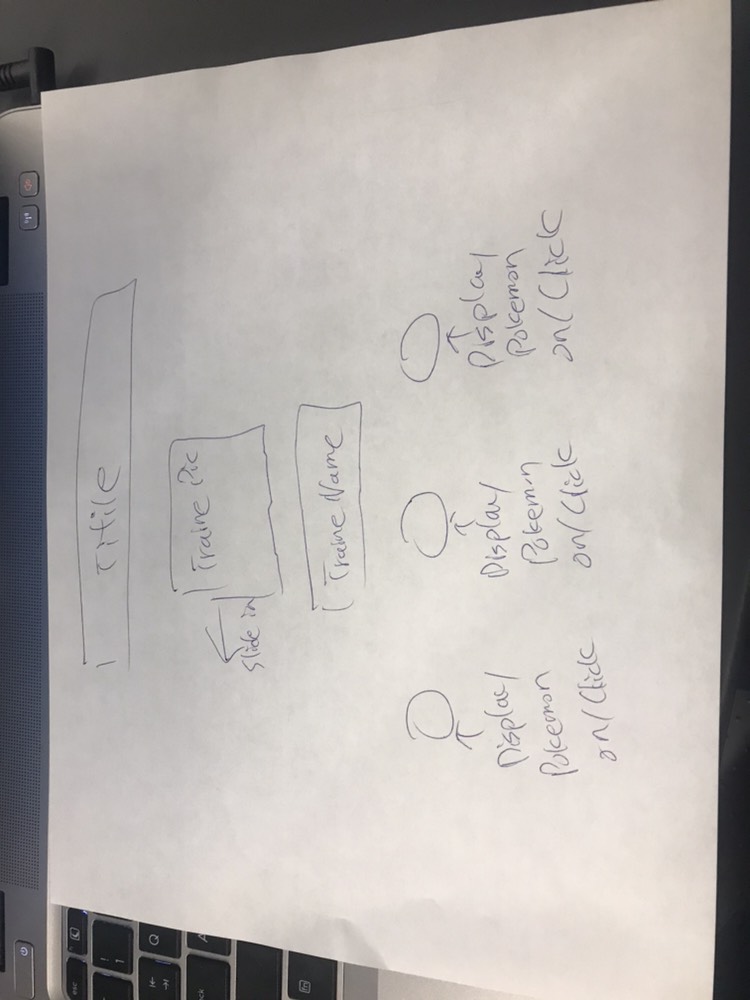 Titile
Traine Pic
Slide in
Traine Name
Display
Pokemon
on/Click
Display
Pokemon
on/Click
Display
Pokemon
on/Click
esc
Q
A
fn